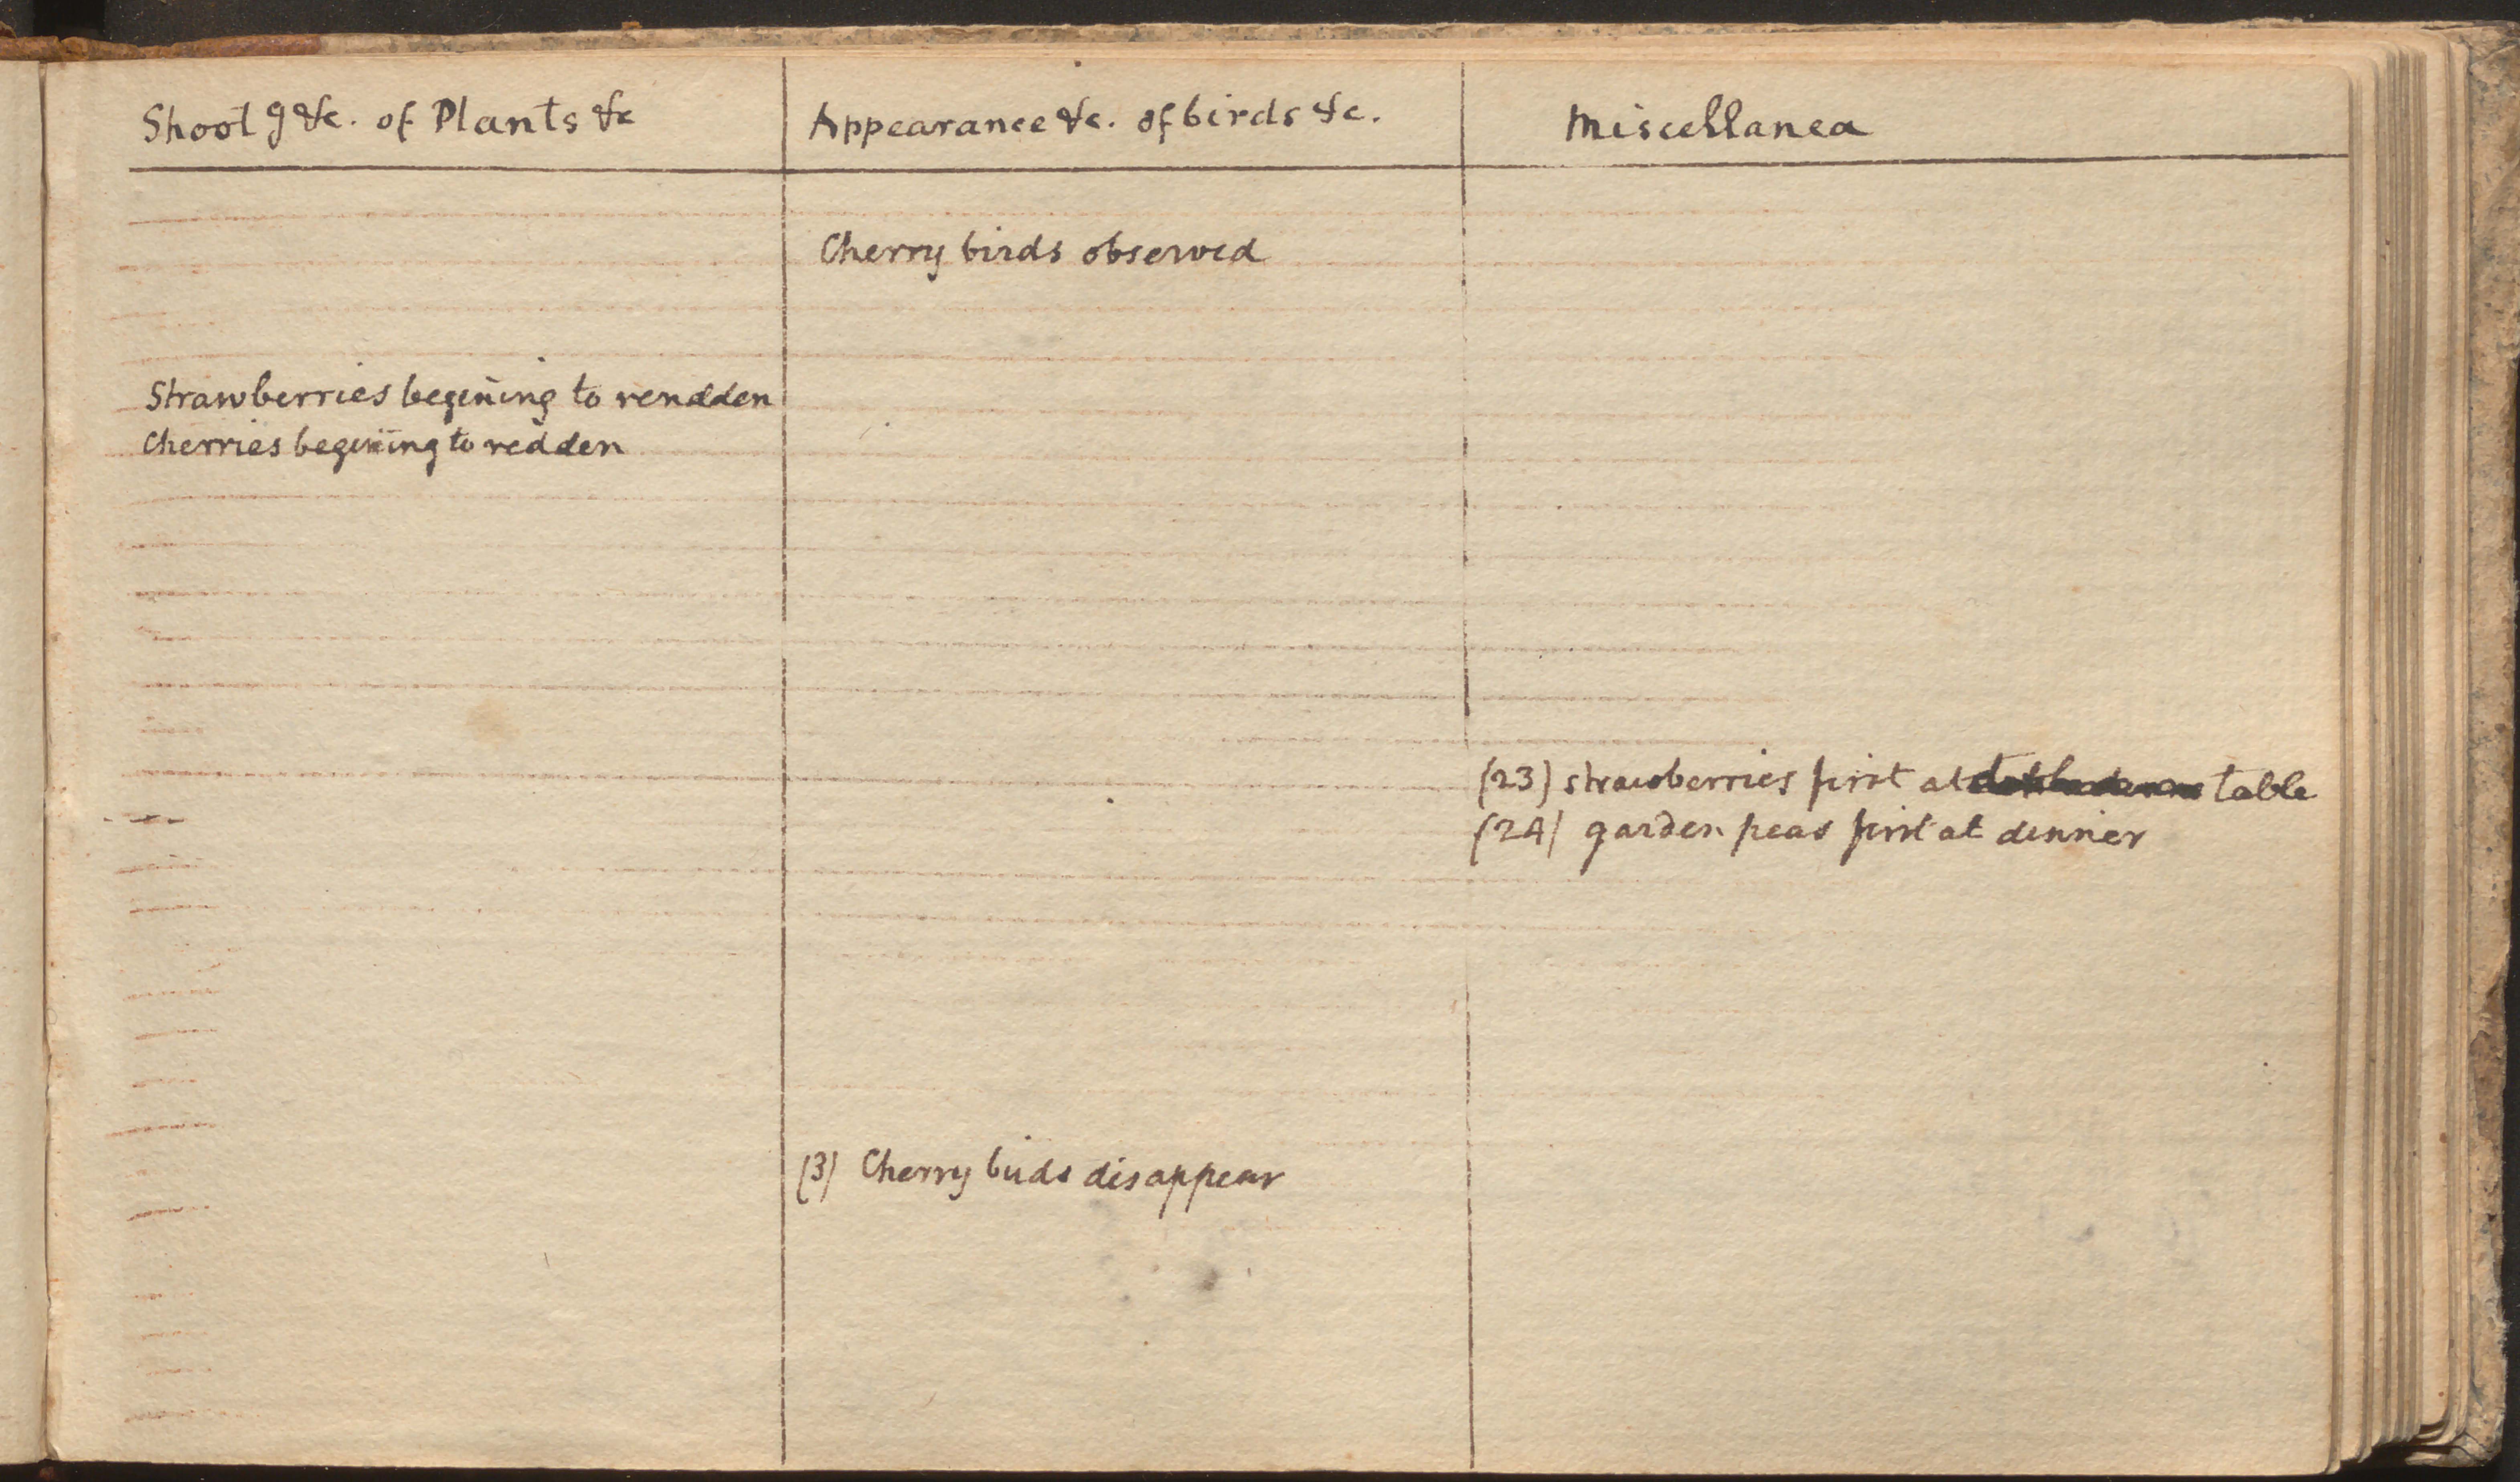 Shootg &c. of Plants &c
Appearance &c. of birds &c.
Miscellanea
Cherry birds observed
Strawberries begining to rendden
Cherries begining to redden
(23) strawberries first at table
(24) garden peas first at dinner
(3) Cherry birds disappear